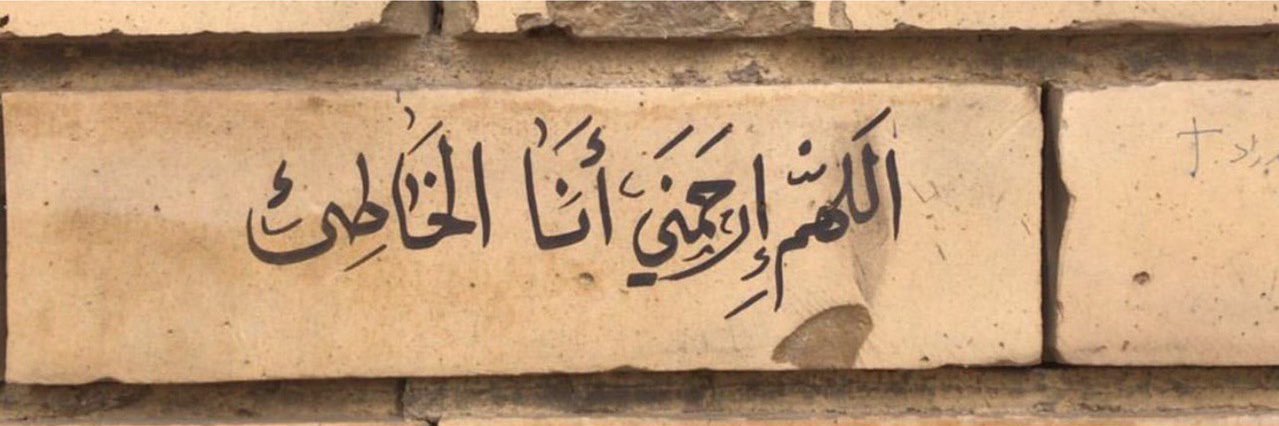 اَللهُمَّ إِرحَمَنِي أَنَا الخَاطِئ